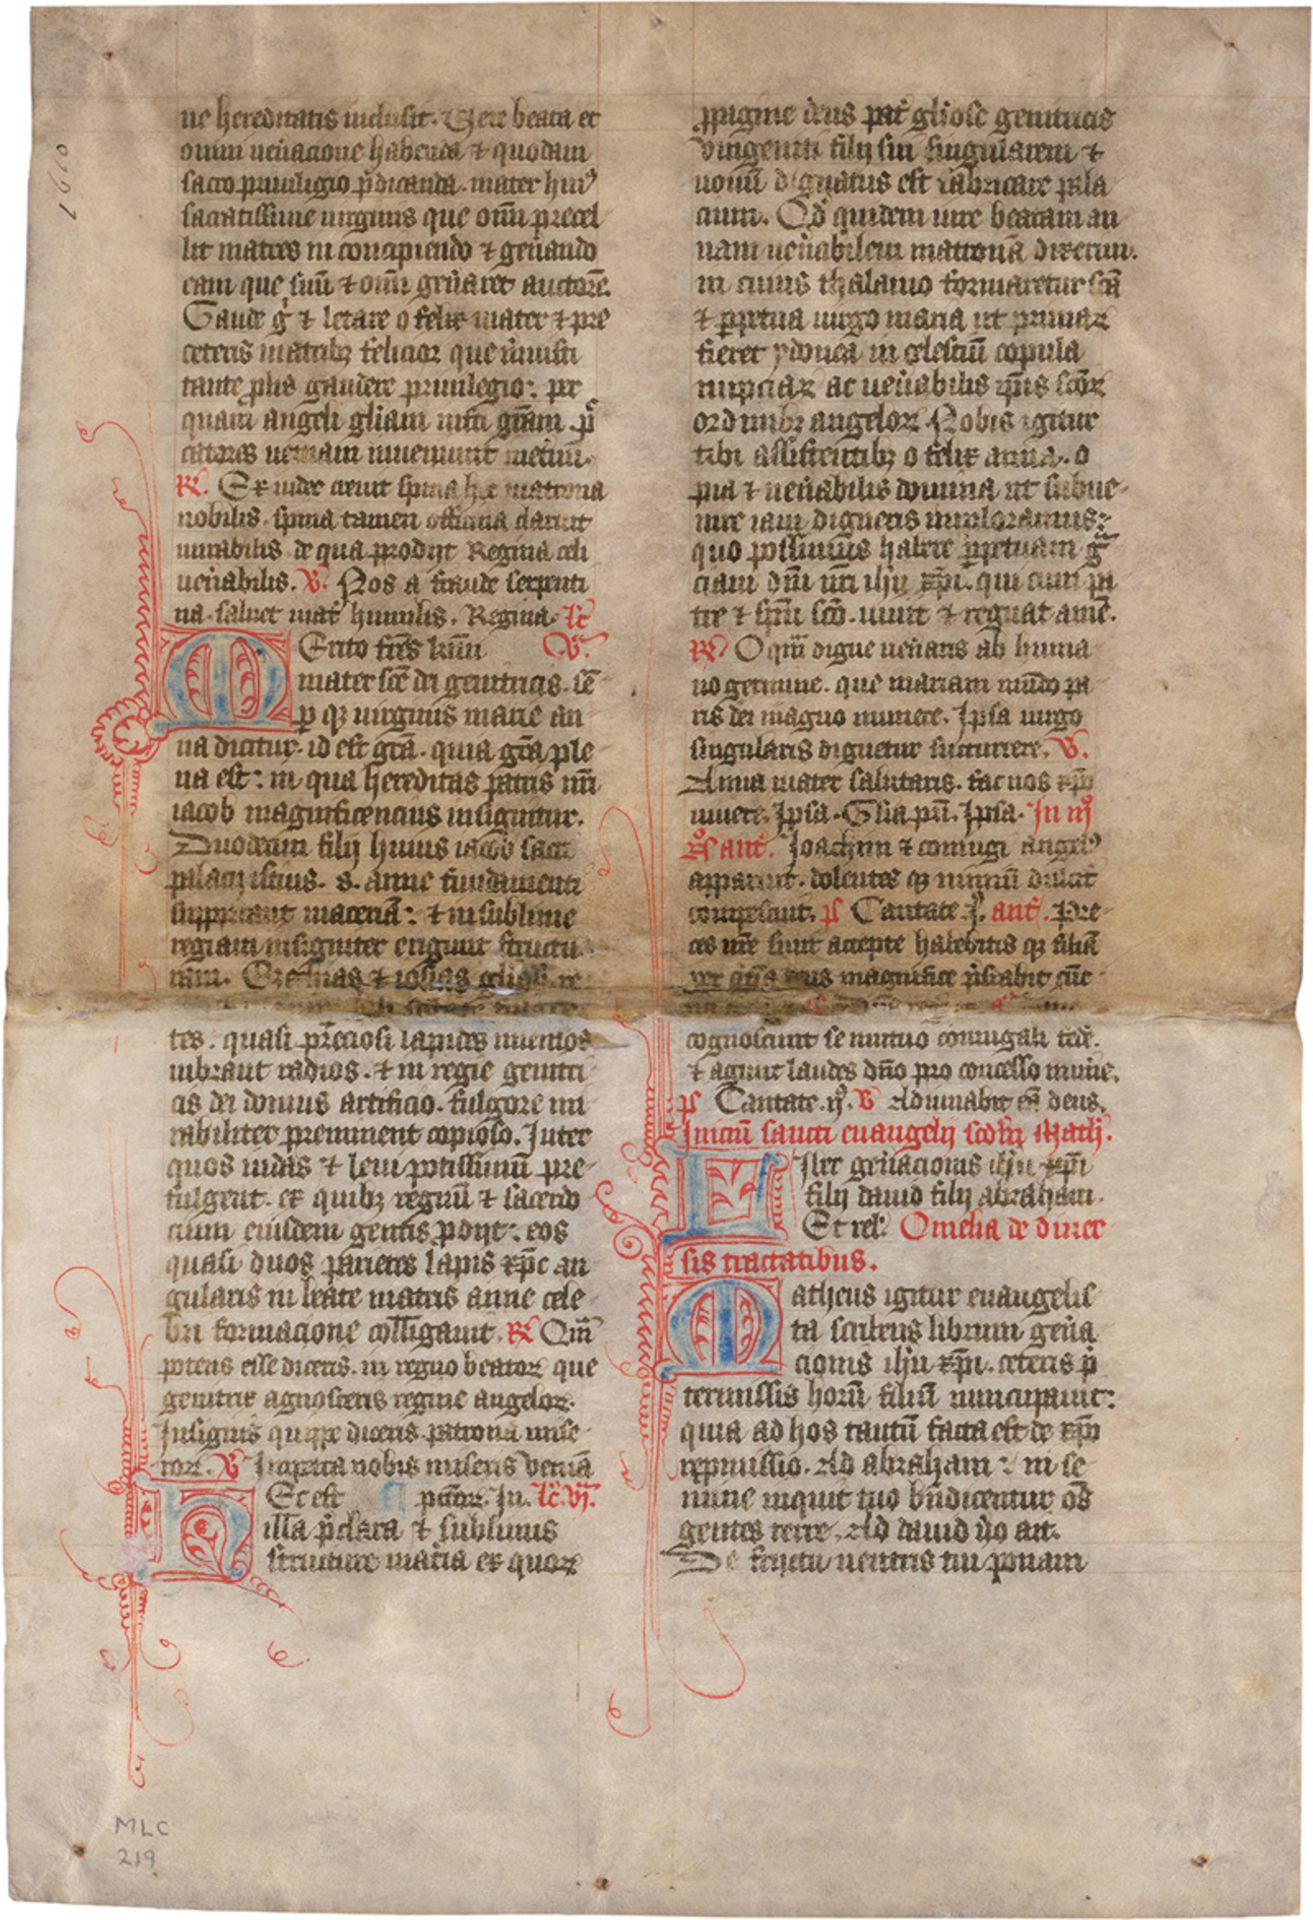 ne hereditatis inclusit. Vere beata et
omni ueñacione habenda ⁊ quodam
sacro priuilegio p̄dicanda. mater hui9
sacratissime uirginis que om̄i precel
lit matres in concipiendo ⁊ geñando
eam que suū ⁊ oīm geñaret auctorē.
Gaude gͦ ⁊ letare o felix mater ⁊ pre
ceteris matribꝫ felicior que
tante ꝓlis gaudere priuilegio: per
quam angeli gl̄iam iusti gr̄am. p̄c
catores ueniam inuenerunt
℟. Ex iudee creuit spina hec matrona
nobilis. spina tamen officina claruit
mirabilis de qua prodijt Regina celi
ueñabilis. ℣. Nos a fraude serpenti
na. saluet mat̄ humilis. Regina. lc̄
Erito fr̄es kmi V.
mater sc̄e dei genitricis. se
ꝑ qꝫ uirginis marie an
na dicitur. id est gr̄a. quia gr̄a ple
na est: in qua hereditas patris nr̄i
iacob magnificencius insignitur.
Duodecim filij huius iacob sacri
palacij istius. s. anne fundamenti
supportant materiā: ⁊ in sublime
regiam insigniter erigunt structu
ram. Ezechias ⁊ iosias re
tes. quasi p̄ciosi lapides
uibrant radios. ⁊ in regie genitri
cis dei domus artificio. fulgore mi
rabiliter preminent copioso. Inter
quos iudas ⁊ leui potissimū pre
fulgent. ex quibꝫ regnū ⁊ sacerdo
cium eiusdem gentis ꝓdijt: eos
quasi duos parietes lapis xp̄c an
gularis in beate matris anne cele
bri formacione colligauit. ℟. Qm̄
potens esse diceris. in regno beatoꝝ que
genitrix agnosceris regine angeloꝝ.
Insignis quippe diceris. patrona mise
roꝝ. ℣ Impetra nobis miseris veniā
Ec est p̄ctoꝝ. In. lc̄. vi.
illa p̄clara ⁊ sublimis
structure mat̄ia ex quoꝝ
ꝓpagine deus pat̄ gl̄iose genitricis
vnigeniti filij sui singularem ⁊
nouū dignatus est fabricare pala
cium. Qd̄ quidem iure beatam an
nam ueñabilem matronā dixerim.
in cuius thalamo formaretur sc̄a
⁊ ꝑpetua uirgo maria ut primaꝝ
fieret ydonea in celestiū copula
nupciaꝝ ac ueñabilis sc̄oꝝ
ordinibꝫ angeloꝝ. Nobis igitur
tibi assistentibꝫ o felix anna. o
pia ⁊ ueñabilis domina. ut subue
nire iam digneris imploramus:
quo possimus habere ꝑpetuam gr̄a
ciam dn̄i nr̄i ih̄u xp̄i. qui cum pa
tre ⁊ sp̄u sc̄o. uiuit ⁊ regnat amē.
℟ O qm̄ digne ueñaris ab huma
no germine. que mariam mūdo pa
ris dei magno munere. Ipsa uirgo
singularis dignetur succurrere. ℣.
Anna mater salutaris. fac nos xp̄o
uiuere. Ipsa. Gl̄ia pr̄i. Ipsa. In iijͦ
Nͦ. ant̄. Joachim ⁊ coniugi angel9
apparuit. dolentes qꝫ nimiū dulcit̄
compescuit. ps Cantate jͦ. ant̄. Pre
ces ur̄e sunt accepte habebitis qꝫ filiā
per quā deus magnifice
cognoscunt se mutuo coniugali fede.
⁊ agunt laudes dn̄o pro concesso mun̄e.
ps Cantate. ijͦ. ℣ Adiuuabit eā deus.
Iniciū sancti euangelij scd̄m Math̄.
Iber geñacionis ih̄u xp̄i
filij dauid filij abraham.
Et rel̄. Omelia de diuer
sis tractatibus.
atheus igitur euangelis
ta scribens librum geña
cionis ih̄u xp̄i. ceteris p̄
termissis horū filiū nuncupauit:
quia ad hos tantū facta est de xp̄o
repmissio. Ad abraham: in se
mine inquit tuo bn̄dicentur oēs
gentes terre. Ad dauid u̇o ait.
De fructu uentris tui ponam
1610
MLC
219